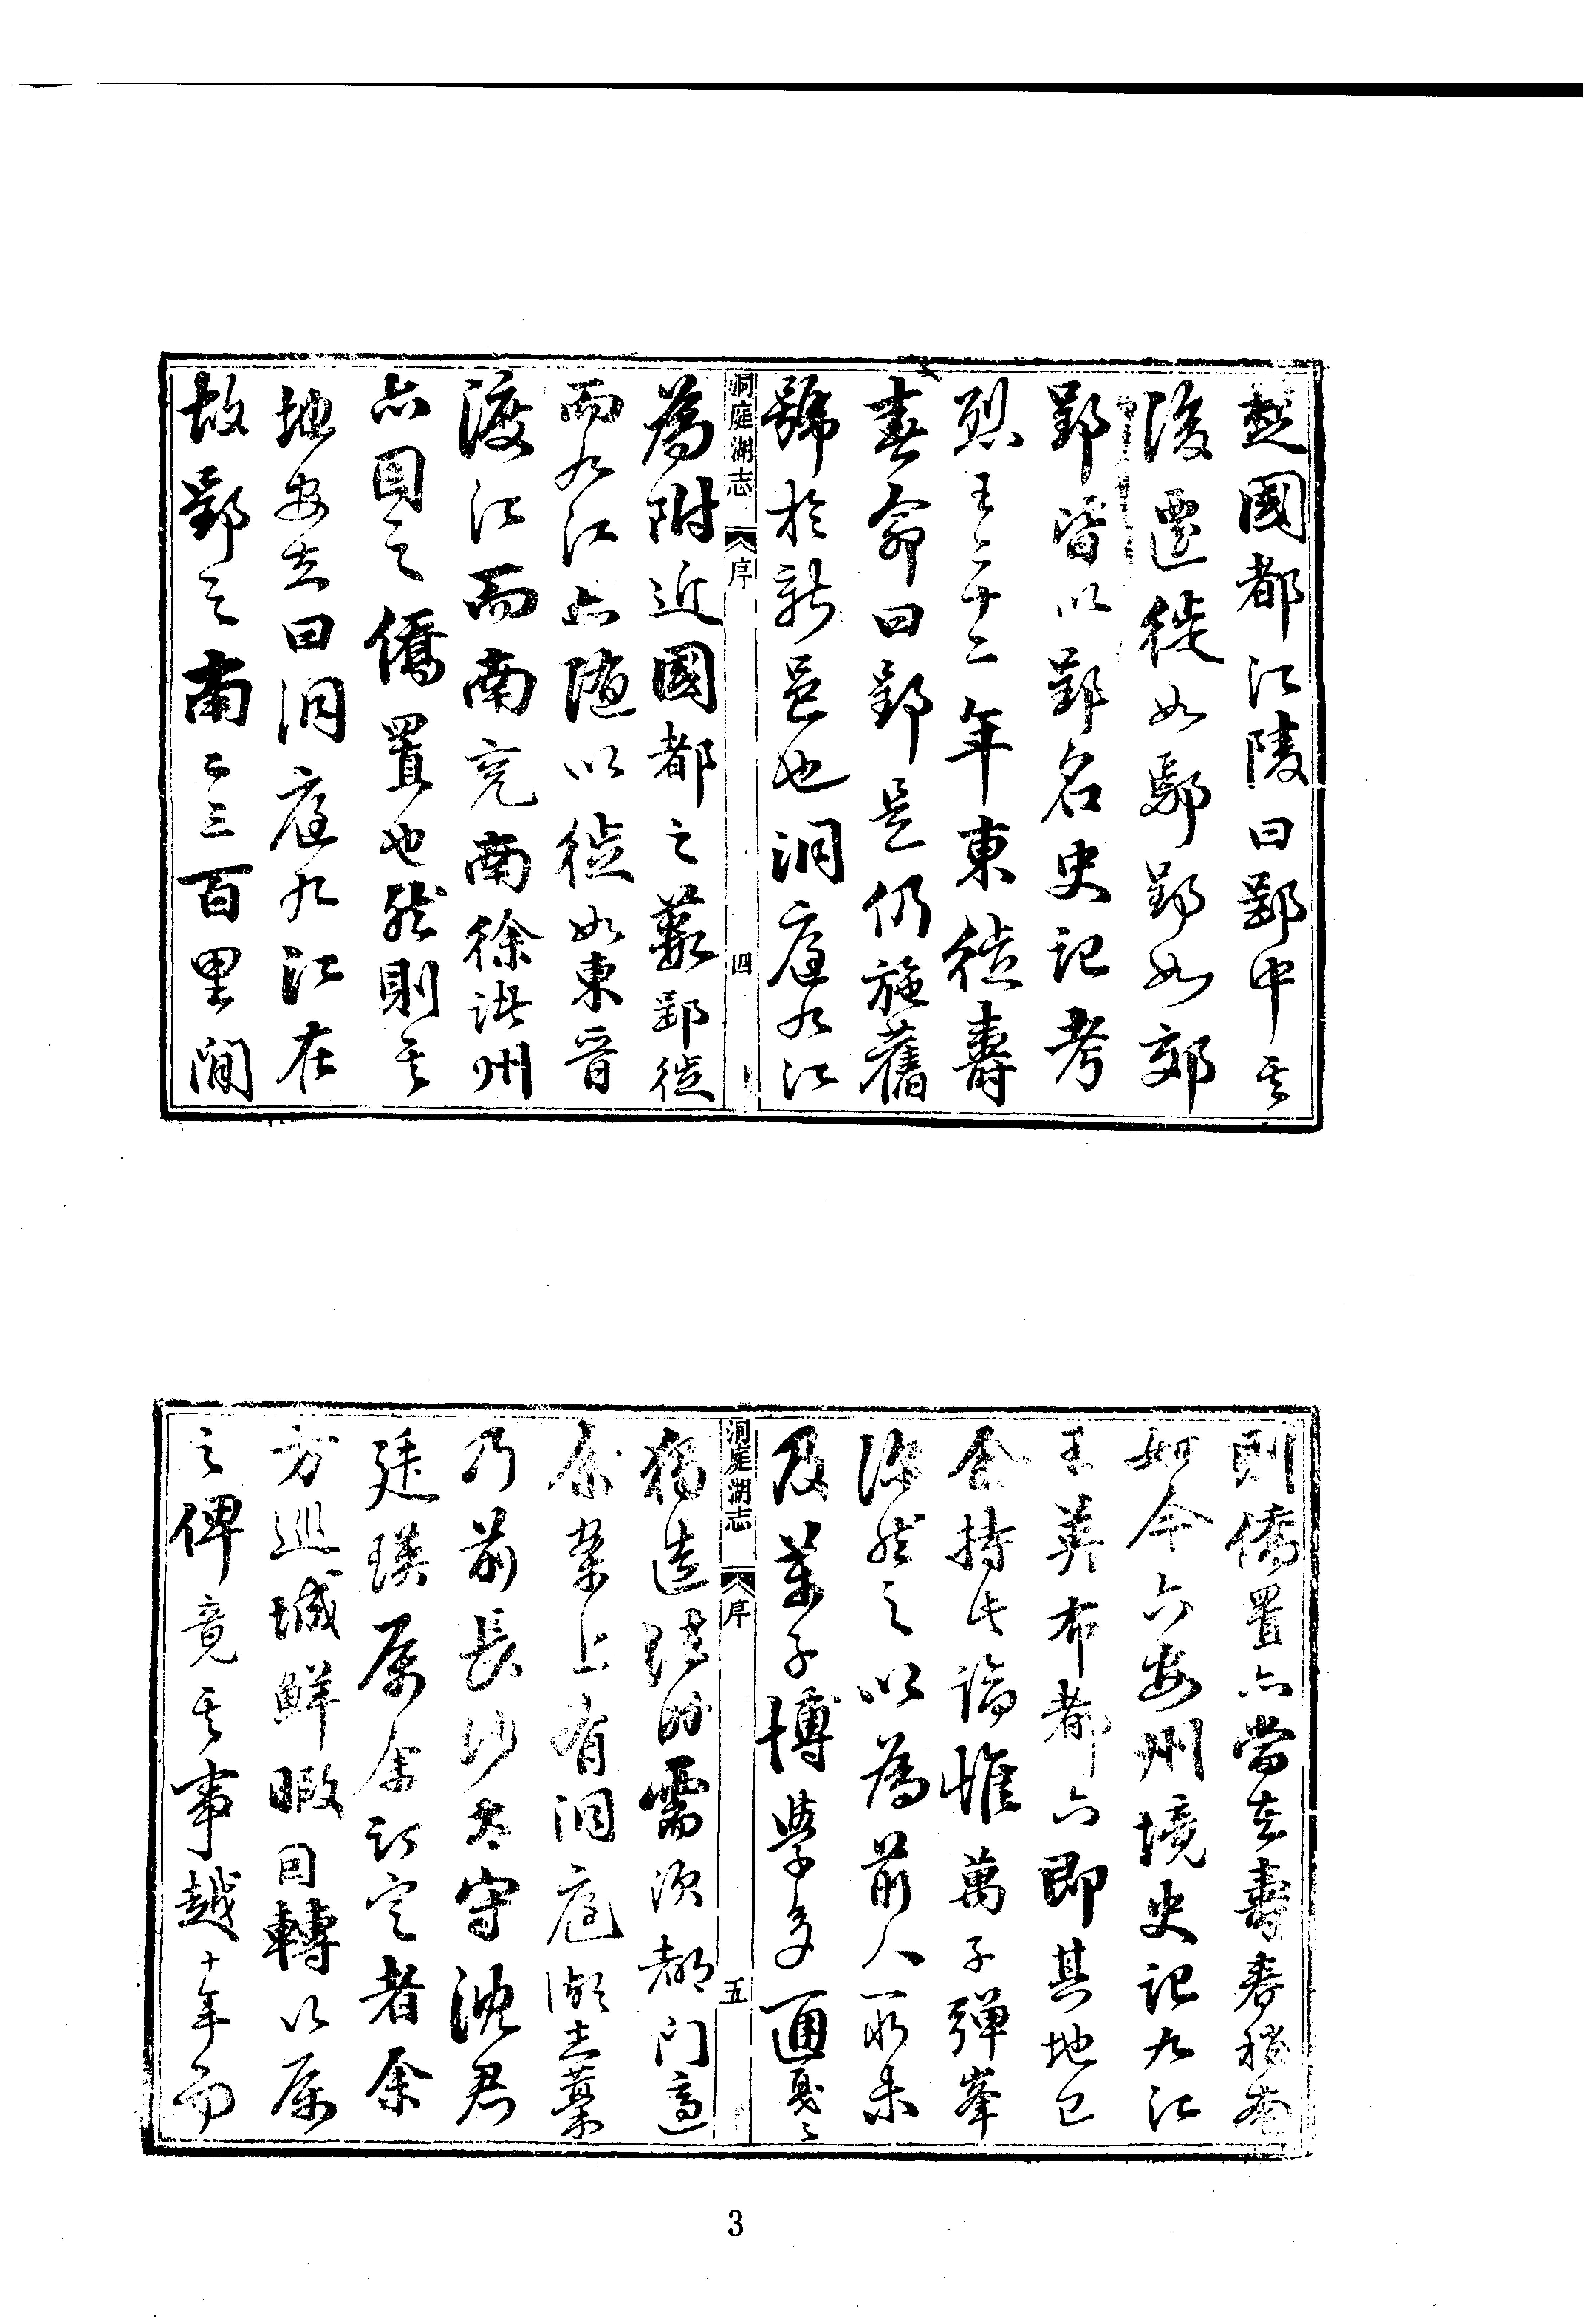 楚國都江陵曰郢中其
後遷徙如鄢郢如郊
郢皆以郢名史記考
烈王二十二年東徙壽
春命曰郢是仍施舊
號於新邑也洞庭九江
洞庭湖志 序 四
為附近國都之藪郢徙
而九江亦隨以徙如東晉
渡江而南兗南徐諸州
亦因之僑置也然則其
地安在曰洞庭九江在
故郢之南二三百里間
則僑置亦當在壽春稍南
如今六安州境史記九江
王英布都六即其地已
余持此論惟萬子彈峯
深然之以為前人所未
及葉子博學多通戛戛
洞庭湖志 序 五
獨造 需次都門適
余案上有洞庭湖志藁
乃前長沙太守沈君
廷瑛屬余訂定者余
方巡城鮮暇因轉以屬
之俾竟其事越十年而
3